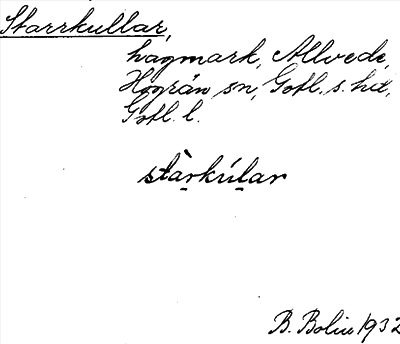 Starrkullar,
hagmark, Allvede,
Hogrän sn, Gotl. s. hd,
Gotl. l.
stàrkúlar
B. Bolin 1932